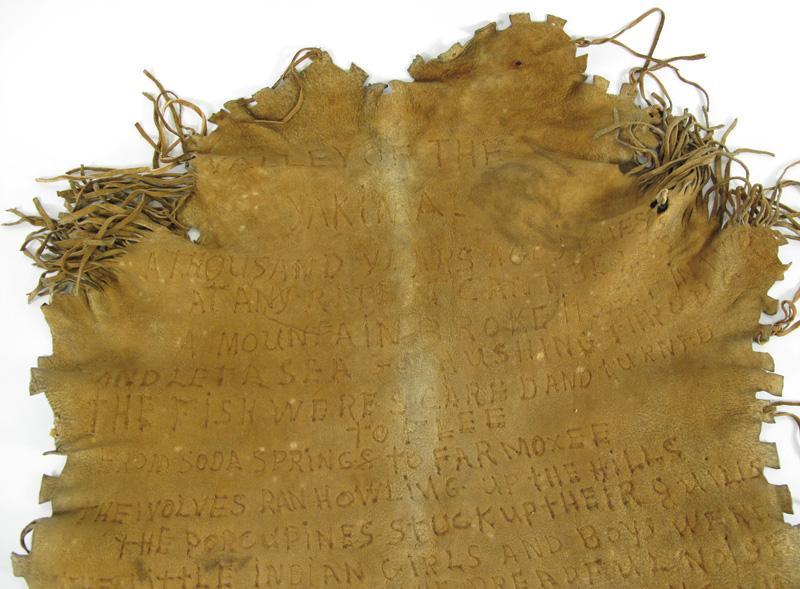 VALLEY OF THE
YAKIMA.
A THOUSAND YEARS AGO
AT ANY RATE IT CAN
A MOUNTAIN BROKE
AND LET A SEA RUSHING THROUGH
THE FISH WERE SCARED AND TURNED
TO FLEE
FROM SODA SPRINGS TO FAR MOXEE
THE WOLVES RAN HOWLING UP THE HILLS
THE PORCUPINES STUCK UP THEIR QUILLS
LITTLE INDIAN GIRLS AND BOYS WENT
DREADFUL NOISE